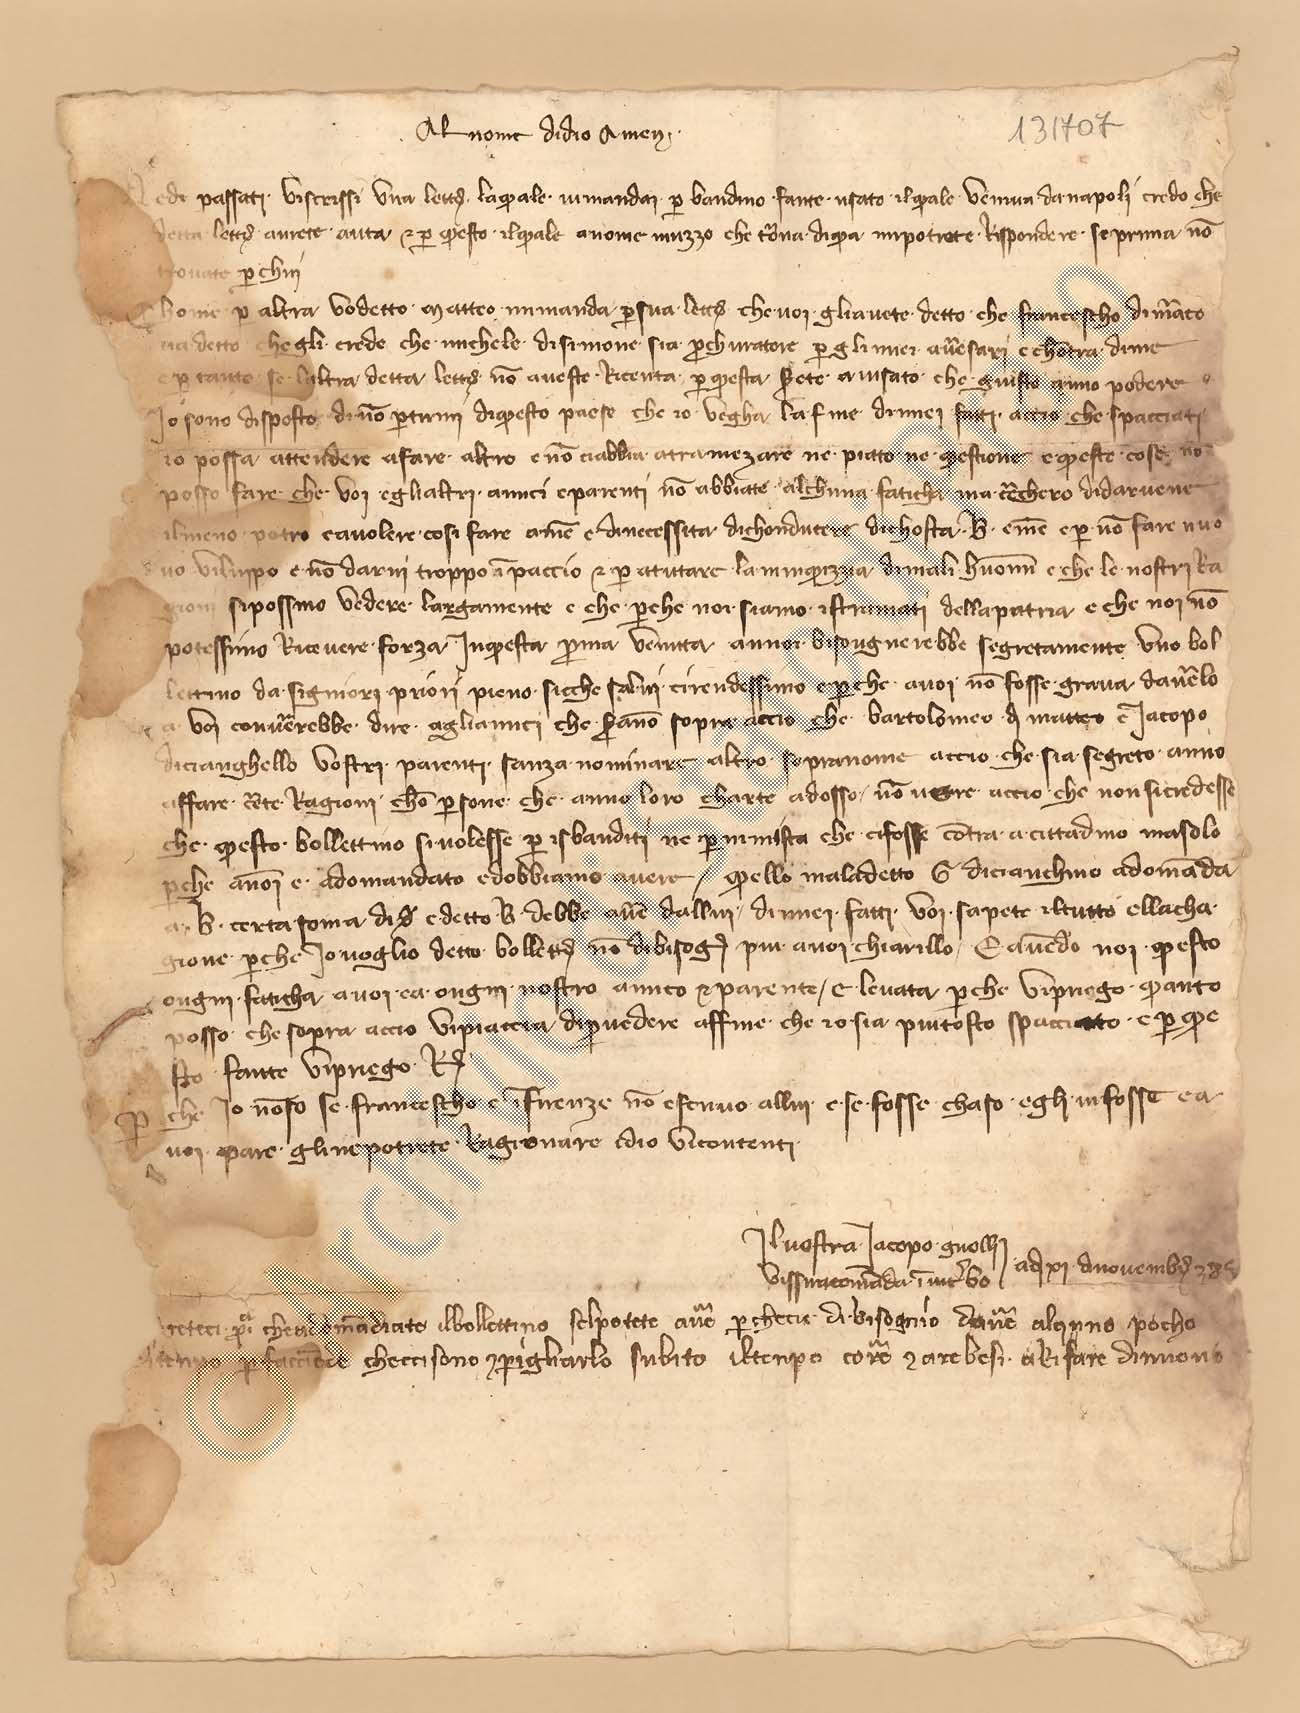 Al nome di dio Amen
131707
passati viscrissi una letta laquale vi mandai p bandino fante usato ilquale veniva da napoli credo che
detta letta avrete auta e p questo ilquale a nome muzzo che torna diqua mi potrete rispondere se prima nō
trovate p chui
p altra vo detto matteo mi manda p sua letta che voi gli avete detto che francescho di marcho
detto chegli crede che michele di simone sia prochuratore p gli miei aūesari e chōtra di me
e p tanto se laltra detta letta nō aveste ricevuta p questa sarete avisato che giusto a mio podere
Io sono disposto di nō partirmi di questo paese che io vegha la fine di miei fatti accio che spacciati
io possa attendere a fare altro e nō ci abbia a tramezare ne piato ne questione e queste cose nō
posso fare che voi e gli altri amici e parenti nō abbiate alchuna faticha ma cercherò di darvene
il meno potro e a volere cosi fare a me e di necessita di chonducere di chosta B. e me e p nō fare nuo
vo viluppo e nō darvi troppo īpaccio e p atutare la miniquizia di mali huomini e che le nostri ra
gioni si possino vedere largamente e che p che noi siamo istrimati della patria e che noi nō
potessimo ricevere forza In questa prima venuta a noi bisongnerebbe segretamente uno bol
lettino da signiori priori pieno sicche salvi ci rendessimo e p che a voi nō fosse grava davello
a voi converrebbe dire agli amici che sarano sopra accio che bartolomeo di matteo e Jacopo
di cianghello vostri parenti sanza nominare altro sopranome accio che sia segreto anno
affare certe ragioni cho psone che anno loro charte adosso nō vere accio che non si credesse
che questo bollettino si volesse p isbanditi ne p inimista che ci fosse contra a cittadino ma solo
p che a noi e adomandato e dobbiamo avere / quello maladetto G di cianchino adomāda
a B. certa soma di d e detto B. debbe avere dallui / di miei fatti voi sapete il tutto e lla cha
gione p che Io voglio detto bollettino nō dibisogna piu a voi chiarillo / E avendo noi questo
ongni faticha a voi e a ongni nostro amico e parente / e levata p che vi priego quanto
posso che sopra accio vi piaccia di provedere affine che io sia piutosto spacciato e p que
sto fante vi priego R
P che Io nō so se francescho e īfirenze nō escrivo allui e se fosse chaso egli vi fosse e a
voi pare gline potrete ragionare idio vi contenti
Il vostro Jacopo guollj
vissi racomāda ī viterbo adj xi di novembre
che adomādiate il bollettino sel potete avere p che ci e di bisogno davere alquno pocho
tenpo p faccēde che cci sono e pigliarlo subito il tenpo corre e arebesi a rifare di nuovo